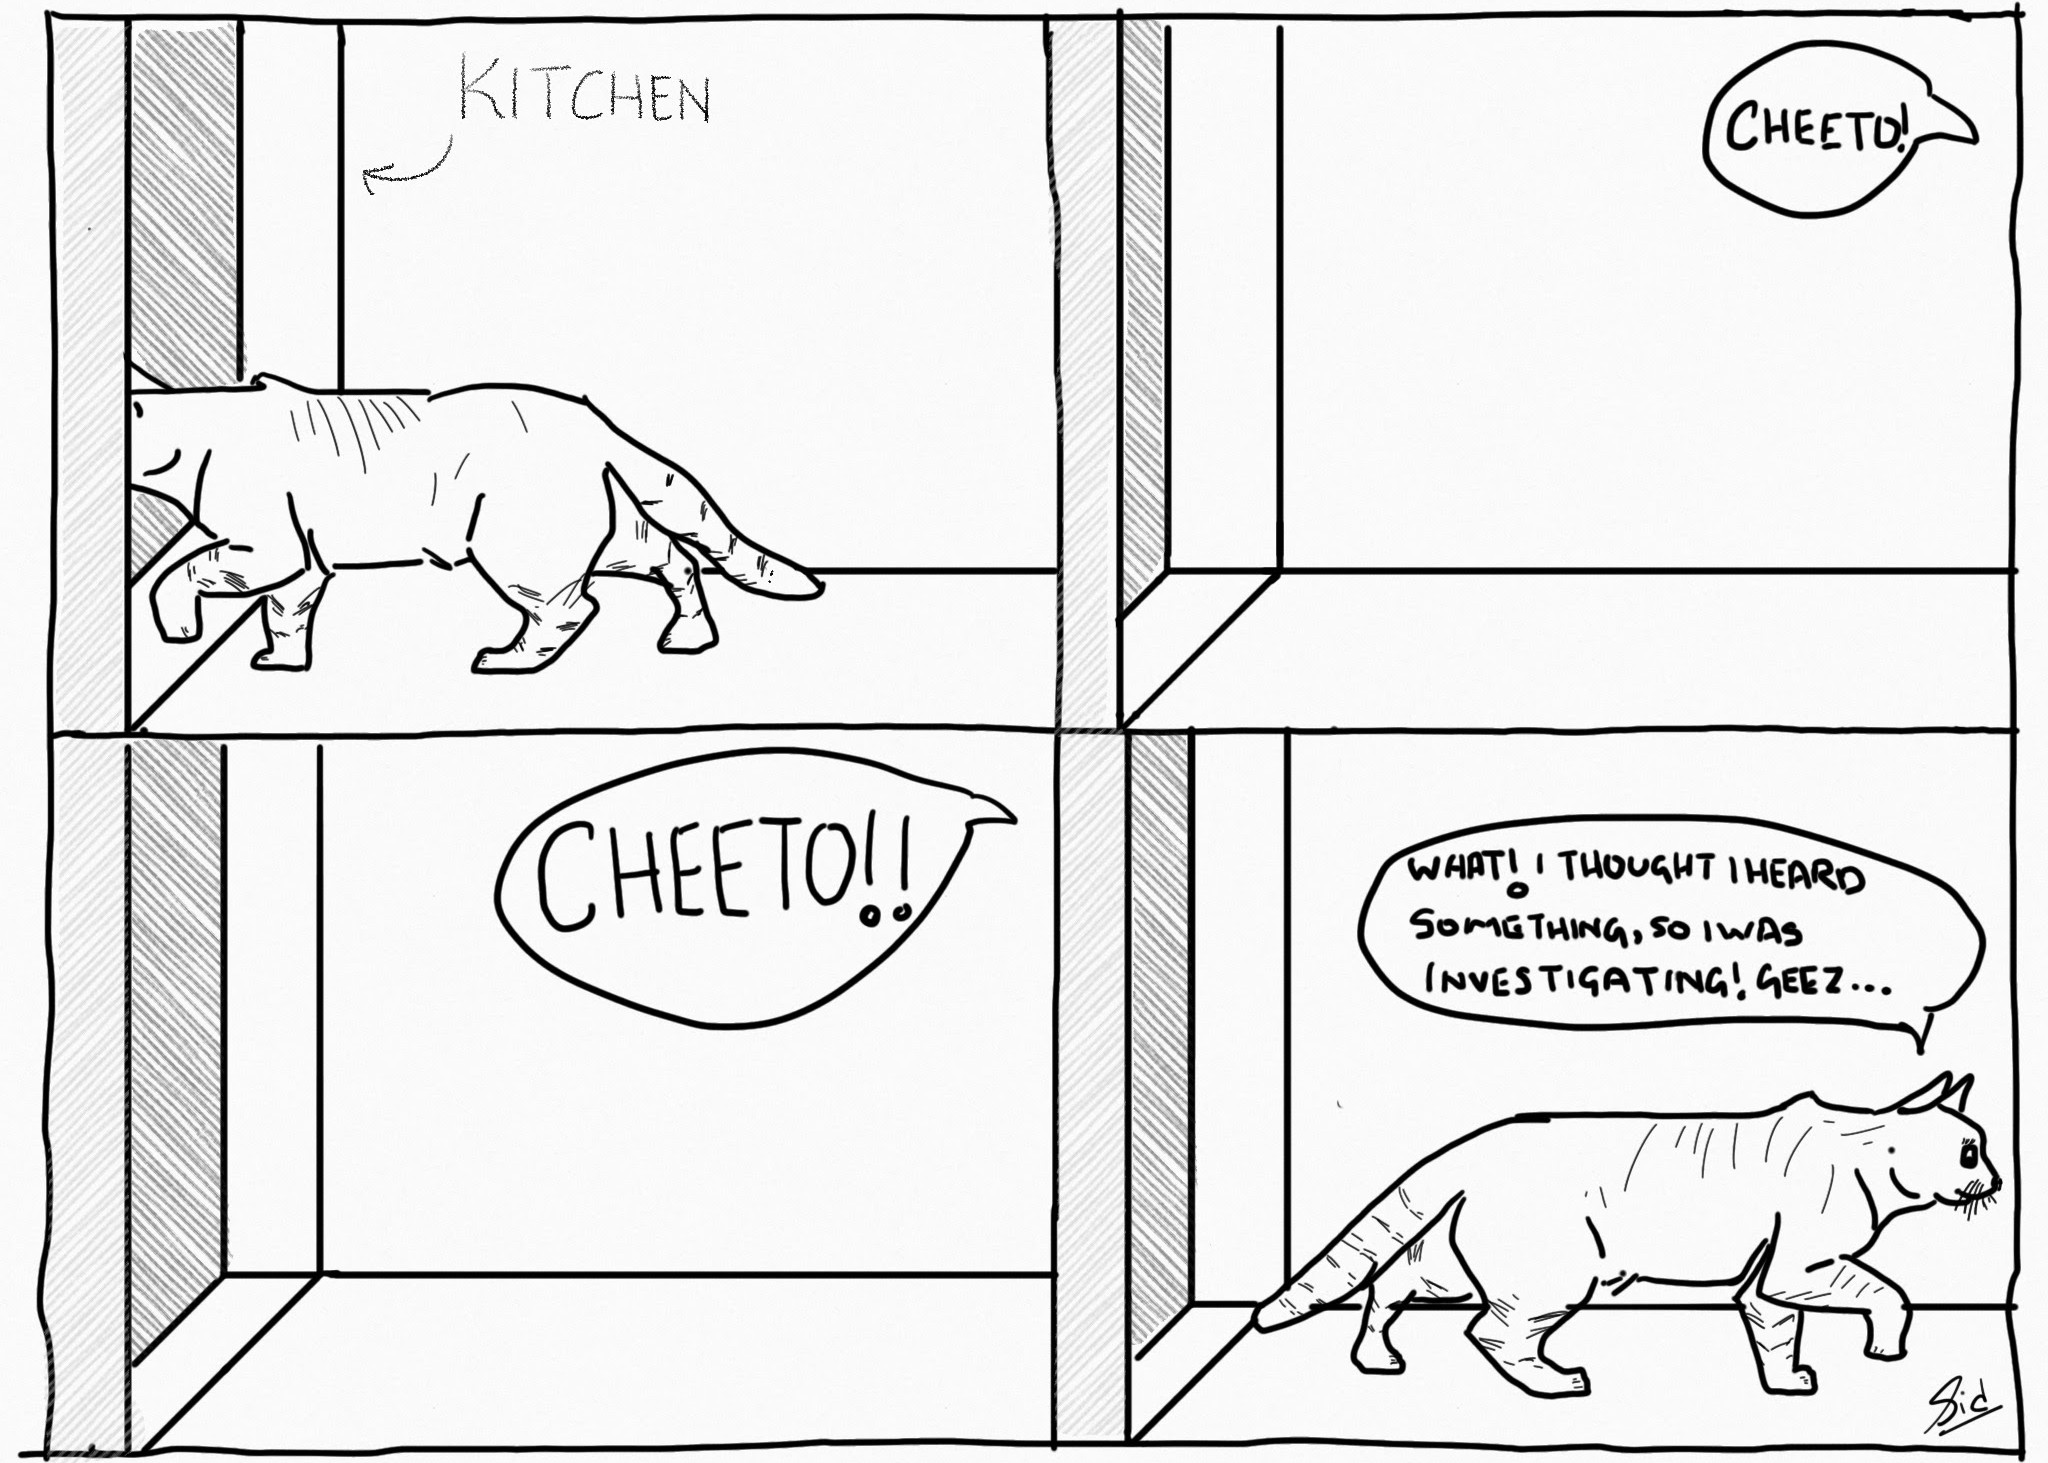 KITCHEN
CHEETO!
CHEETO!!
WHAT! I THOUGHT I HEARD
SOMETHING, SO I WAS
INVESTIGATING! GEEZ...
Sid